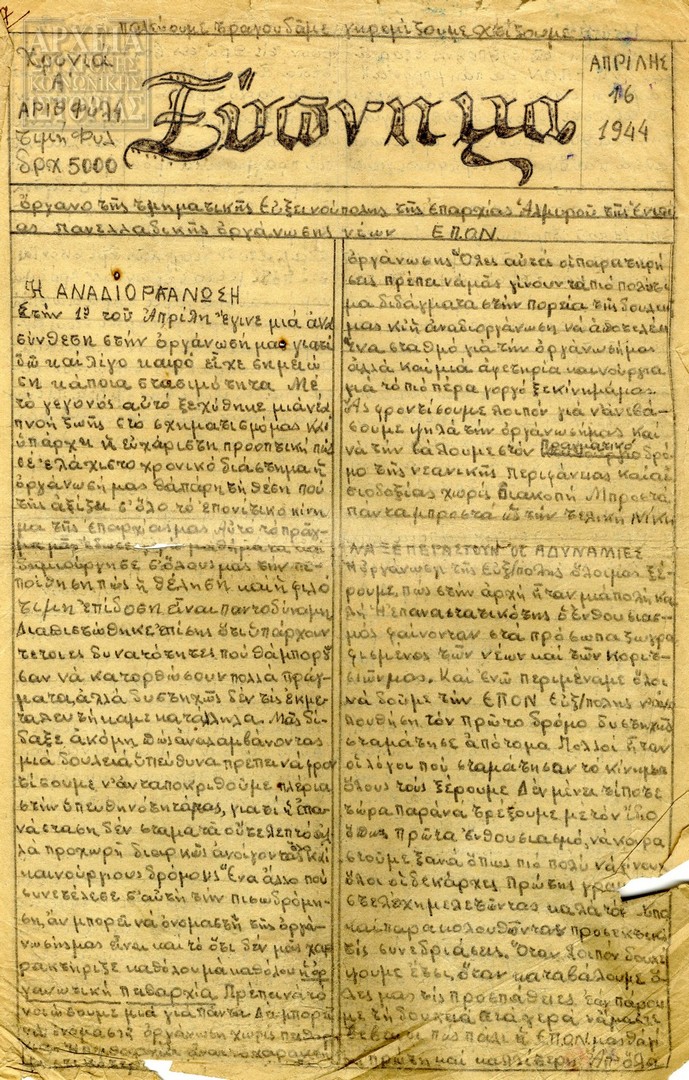 παλεύουμε τραγουδάμε γκρεμίζουμε χτίζουμε
ΑΡΧΕΙΑ
Χρονιά
Α΄
ΑΡΙΘ ΦΥΛ
Τιμή Φυλ
δρχ 5000
Ξύπνημα
ΑΠΡΙΛΗΣ
16
1944
Όργανο τῆς τμηματικῆς Εὐξεινούπολης τῆς ἐπαρχίας Ἁλμυροῦ τῆς Ἑνιαί
ας πανελλαδικῆς ὀργάνωσης νέων ΕΠΟΝ
Ἡ ΑΝΑΔΙΟΡΓΑΝΩΣΗ
Στὴν 1η τοῦ Ἀπρίλη ἔγινε μιά ἀνα
σύνθεση στὴν ὀργάνωσή μας γιατί
ἐδῶ καί λίγο καιρό εἶχε σημειώ
ση κάποια στασιμότητα. Μέ
τό γεγονός αὐτό ξεχύθηκε μιά νέα
πνοή ζωῆς στό σχηματισμό μας κι
ὑπάρχει ἡ εὐχάριστη προοπτική πώς
σέ ἐλάχιστο χρονικό διάστημα ἡ
ὀργάνωσή μας θά πάρη τή θέση πού
τῆς ἀξίζει σ' ὅλο τό ἐπονίτικο κίνη
μα τῆς ἐπαρχίας μας. Αὐτό τό πρᾶγ
μα μᾶς ἔδωσε μαθήματα καί
δημιούργησε σ' ὅλους μας τήν πε
ποίθηση πώς ἡ θέληση καί ἡ φιλό
τιμη ἐπίδοση εἶναι παντοδύναμη
Διαπιστώθηκε ἐπίσης ὅτι ὑπάρχουν
τέτοιες δυνατότητες πού θά μπορού
σαν νά κατορθώσουν πολλά πράγ
ματα, ἀλλά δυστηχῶς δέν τίς ἐκμε
ταλευτήκαμε κατάλληλα. Μᾶς δί
δαξε ἀκόμη πώς ἀναλαμβάνοντας
μιά δουλειά ὑπεύθυνα πρέπει νά φρον
τίσουμε ν' ἀνταποκριθοῦμε πλέρια
στήν ὑπευθηνότητά μας, γιατί ἡ ἐπα
νάσταση δέν σταματά οὔτε λεπτό ἀλ
λά προχωρῆ διαρκῶς ἀνοίγοντας ὅλο καί
καινούργιους δρόμους. Ἕνα ἄλλο πού
συνετέλεσε σ' αὐτή τήν πισωδρόμη
ση, ἄν μπορεῖ νά ὀνομαστῆ τῆς ὀργά
νωσής μας εἶναι καί τό ὅτι δέν μᾶς χα
ρακτήριζε καθόλου μά καθόλου ἡ ὀρ
γανωτική πειθαρχία. Πρέπει νά τό
νοιώσουμε μιά γιά πάντα Δέ μπορεῖ
νά ὀνομαστῆ ὀργάνωση χωρίς πειθαρ
ὀργάνωσης. Ὅλες αὐτές οἱ παρατηρή
σεις πρέπει νά μᾶς γίνουν τά πιό πολύτι
μα διδάγματα στήν πορεία τῆς δουλειᾶς
μας κι ἡ ἀναδιοργάνωση νά ἀποτελέση
ἕνα σταθμό γιά τήν ὀργάνωσή μας
ἀλλά καί μιά ἀφετηρία καινούργια
γιά τό πιό πέρα γοργό ξεκίνημά μας.
Ἄς φροντίσουμε λοιπόν γιά νά ἀνεβά
σουμε ψηλά τήν ὀργάνωσή μας καί
νά τήν βάλουμε στόν πραγματικό δρό
μο τῆς νεανικῆς περιφάνειας καί αἰ
σιοδοξίας χωρίς διακοπή. Μπροστά
πάντα μπροστά ὥς τήν τελική Νίκη
ΝΑ ΞΕΠΕΡΑΣΤΟΥΝ ΟΙ ΑΔΥΝΑΜΙΕΣ
Ἡ ὀργάνωση τῆς Εὐξ/πολης ὅλοι μας ξέ
ρουμε, πώς στήν ἀρχή ἦταν μιά πολύ κα
λή. Ἡ ἐπαναστατικότης ὁ ἐνθουσιασ
μός φαίνονταν στά πρόσωπα ζωγρα
φισμένος τῶν νέων καί τῶν κοριτ
σιῶν μας. Καί ἐνῶ περιμέναμε ὅλοι
νά δοῦμε τήν ΕΠΟΝ Εὐξ/πολης ν' ἀκο
λουθήση τόν πρῶτο δρόμο δυστηχῶς
σταμάτησε ἀπότομα. Πολλοί ἦταν
οἱ λόγοι πού σταμάτησαν τό κίνημα
ὅλους τούς ξέρουμε. Δέν μένει τίποτε
τώρα παρά νά τρέξουμε μέ τόν ἴδιο
ὅπως πρῶτα ἐνθουσιασμό, νά κορα
στοῦμε ξανά ὅπως πιό πολύ νά γίνουν
ὅλοι οἱ δεκάρχες πρώτης γραμμῆς
στελέχη μελετῶντας καλά τόν τύπο
καί παρακολουθῶντας προσεκτικά
τίς συνεδριάσεις. Ὅταν λοιπόν δουλέ
ψουμε ἔτσι, ὅταν καταβάλουμε ὅ
λες μας τίς προσπάθειες, τότε παρου
με τή δουλειά στά χέρια νά μαστε
βέβαιοι πώς πάλι ἡ ΕΠΟΝ μας θά γί
νη πρώτη καί καλλίτερη ἀπ' ὅλα